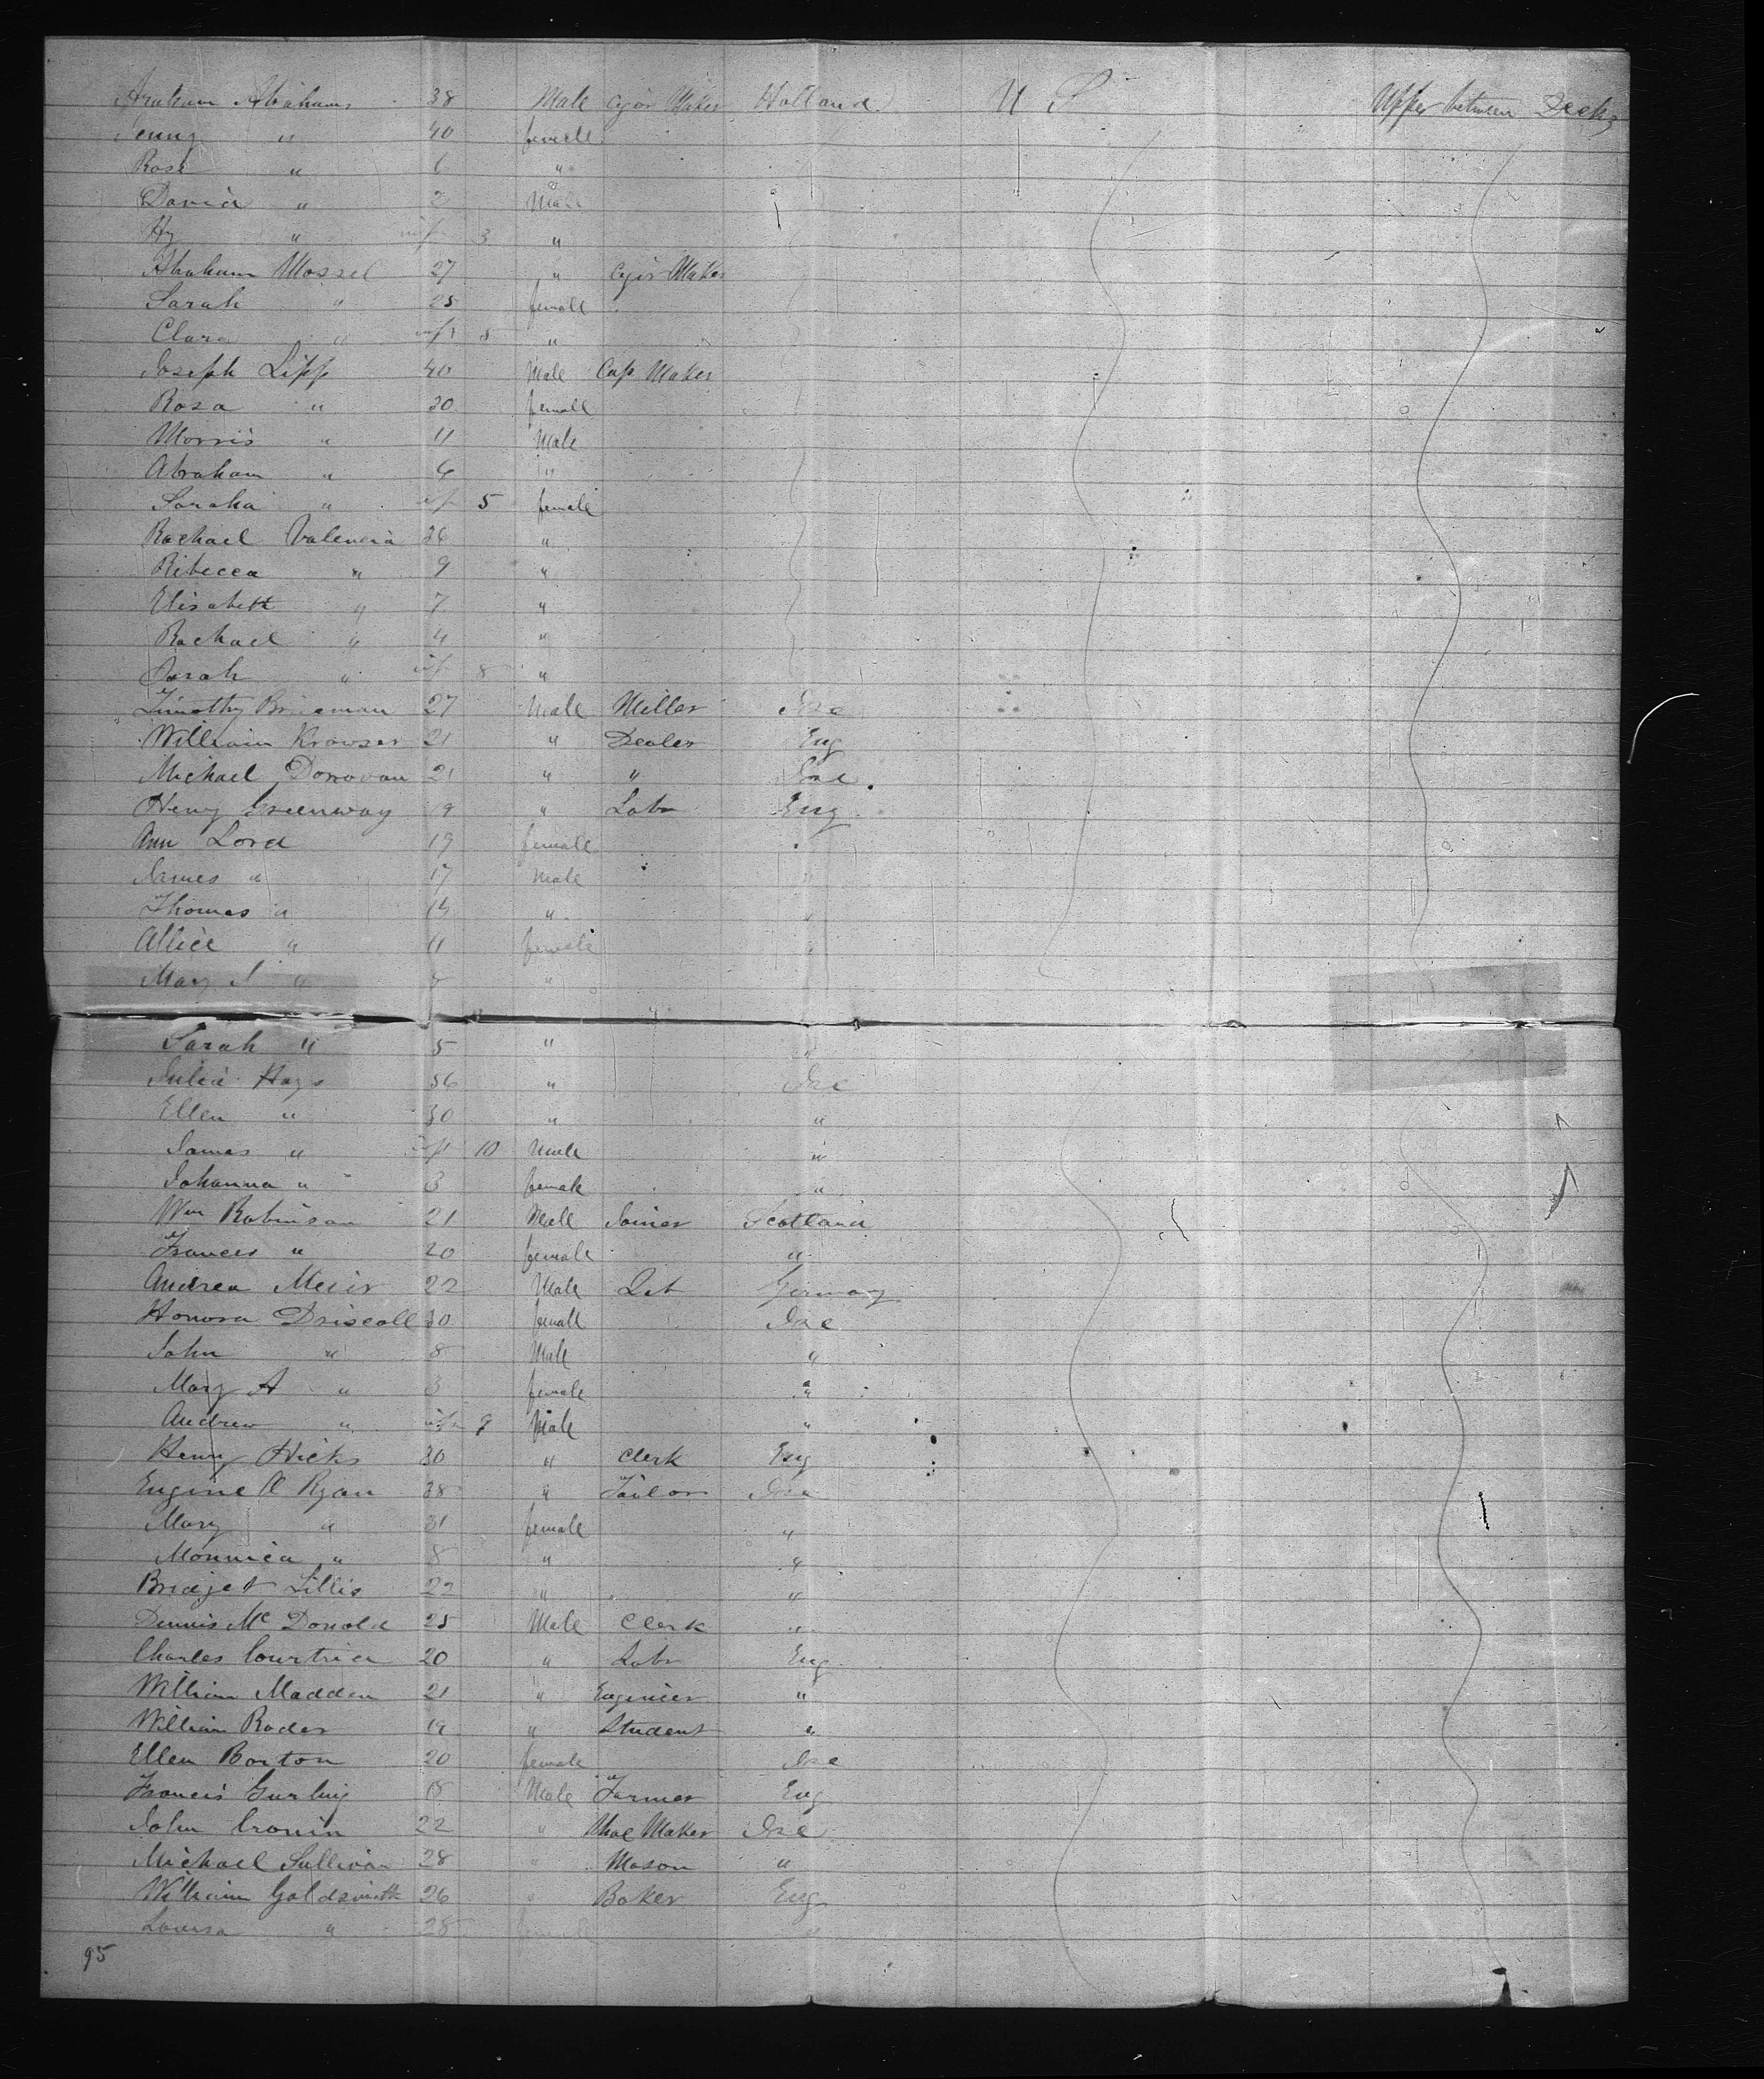 Abraham Abrahams 38 Male Cgar Maker Holland U S Upper between Decks
Jenny " 40 female
Rose " 6 "
David " 2 Male
Hy " inft 3 "
Abraham Mossel 27 " Cgar Maker
Sarah " 25 female
Clara " inft 8 "
Joseph Lipp 40 Male Cap Maker
Rosa " 30 female
Morris " 11 Male
Abraham " 4 "
Saraha " inft 5 female
Rachael Valencia 26 "
Ribecca " 9 "
Elisabeth " 7 "
Rachael " 4 "
Sarah " inft 8 "
Timothy 27 Male Miller Ire
William Krowser 21 " Dealer Eng
Michael Donovan 21 " " Ire
Henry Greenway 19 " Labr Eng
Ann Lord 19 female "
James " 17 Male "
Thomas " " "
Allice " 11 female "
Mary " "
Sarah " 5 " "
Julia Hays 56 " Ire
Ellen " 30 " "
James " inft 10 Male "
Johanna " 3 female "
Wm Robinson 21 Male Joiner Scotland
Frances " 20 female "
Andrea Meier 22 Male Lab Germany
Honora Driscoll 30 female Ire
John " 8 Male "
Mary A " 3 female "
Andrew " inft 9 Male "
Henry Hicks 30 " Clerk Eng
Eugine O Ryan 38 " Tailor Ire
Mary " 31 female "
Monnica " 8 " "
Bridget Lillis 22 " "
Dennis Mc Donald 25 Male Clerk "
Charles Courtrice 20 " Labr Eng
William Madden 21 " Enginier "
William Rader 19 " Student "
Ellen Barton 20 female Ire
Francis Gurling 18 Male Farmer Eng
John Cronin 22 " Shoe Maker Ire
Michael Sullivan 28 " Mason "
William Goldsmith 26 " Baker Eng
Louisa " 28 female "
95